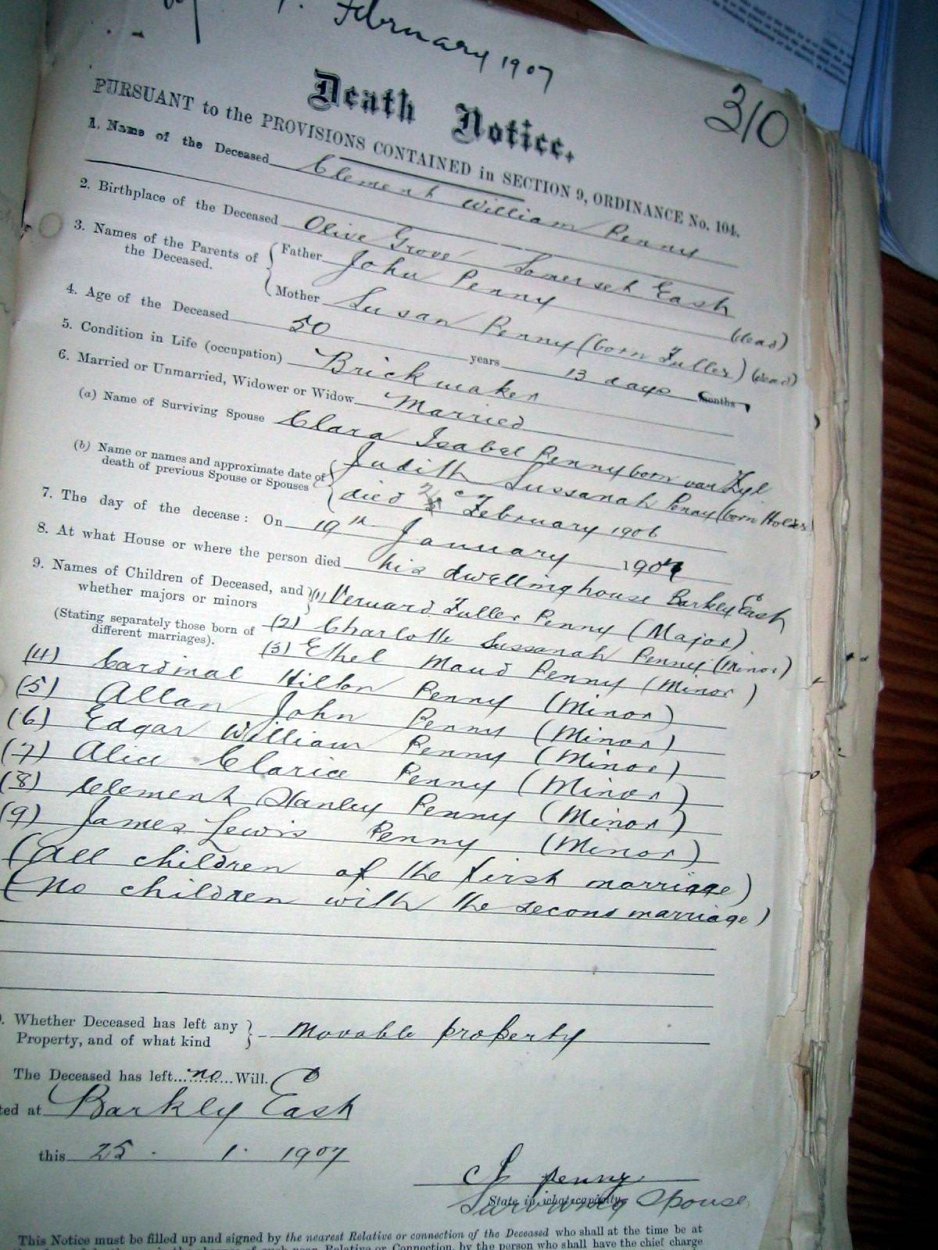 February 1907
310
Death Notice.
PURSUANT to the PROVISIONS CONTAINED in SECTION 9, ORDINANCE No. 104.
1. Name of the Deceased Clement William Penny
2. Birthplace of the Deceased Olive Grove Somerset East
3. Names of the Parents of the Deceased. { Father John Penny (dead)
{ Mother Susan Penny (born Fuller) (dead)
4. Age of the Deceased 50 years 13 days
5. Condition in Life (occupation) Brickmaker
6. Married or Unmarried, Widower or Widow Married
(a) Name of Surviving Spouse Clara Isabel Penny born van Zyl
(b) Name or names and approximate date of death of previous Spouse or Spouses { Judith Sussanah Penny (born
died February 1906
7. The day of the decease: On 19th January 1907
8. At what House or where the person died his dwellinghouse Barkly East
9. Names of Children of Deceased, and whether majors or minors } (1) Vernard Fuller Penny (Major)
(Stating separately those born of different marriages). (2) Charlotte Sussanah Penny (Minor)
(3) Ethel Maud Penny (Minor)
(4) Cardinal Hilton Penny (Minor)
(5) Allan John Penny (Minor)
(6) Edgar William Penny (Minor)
(7) Alice Clarice Penny (Minor)
(8) Clement Stanley Penny (Minor)
(9) James Lewis Penny (Minor)
(All children of the first marriage)
(No children with the second marriage)
Whether Deceased has left any Property, and of what kind } Movable property
The Deceased has left no Will.
ted at Barkly East
this 25 . 1 . 1907
C I Penny
State in what capacity
Surviving Spouse
This Notice must be filled up and signed by the nearest Relative or connection of the Deceased who shall at the time be at
Relative or Connection, by the person who shall have the chief charge